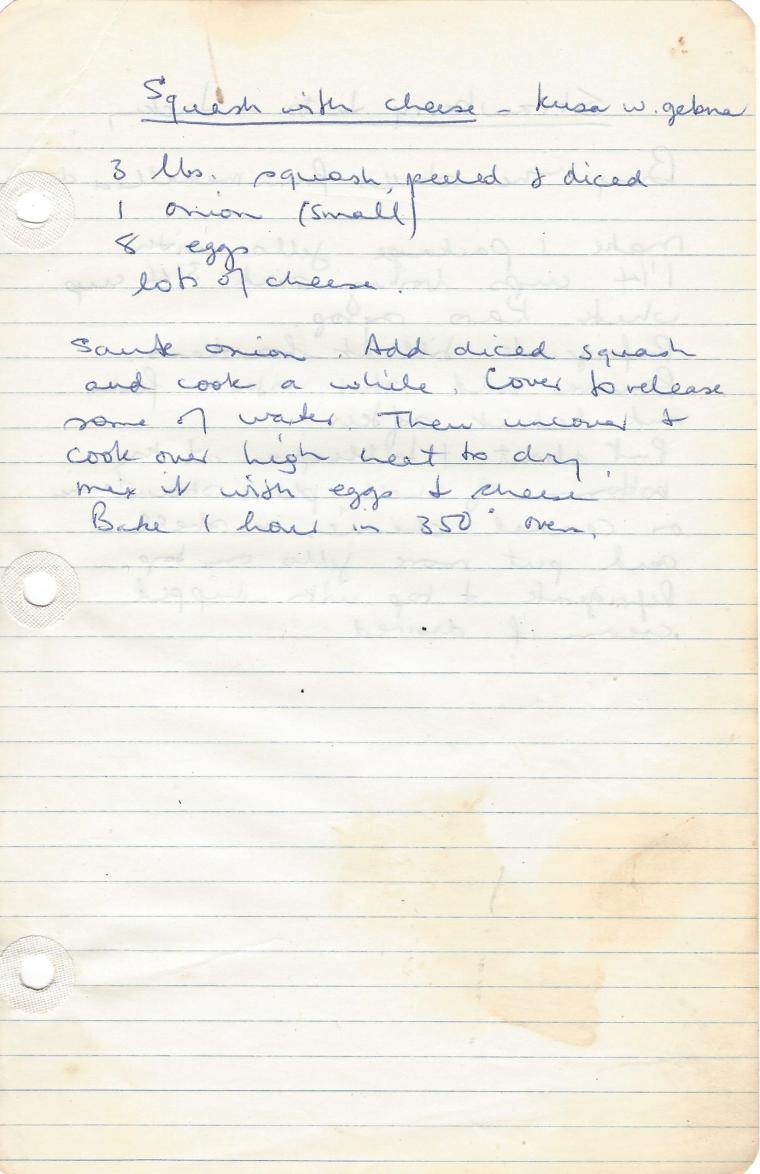 Squash with cheese - Kusa w. gebna
3 lbs. squash, peeled & diced
1 onion (small)
8 eggs
lots of cheese.
Sauté onion. Add diced squash
and cook a while. Cover to release
some of water. Then uncover &
cook over high heat to dry.
mix it with eggs & cheese
Bake 1 hour in 350° oven.